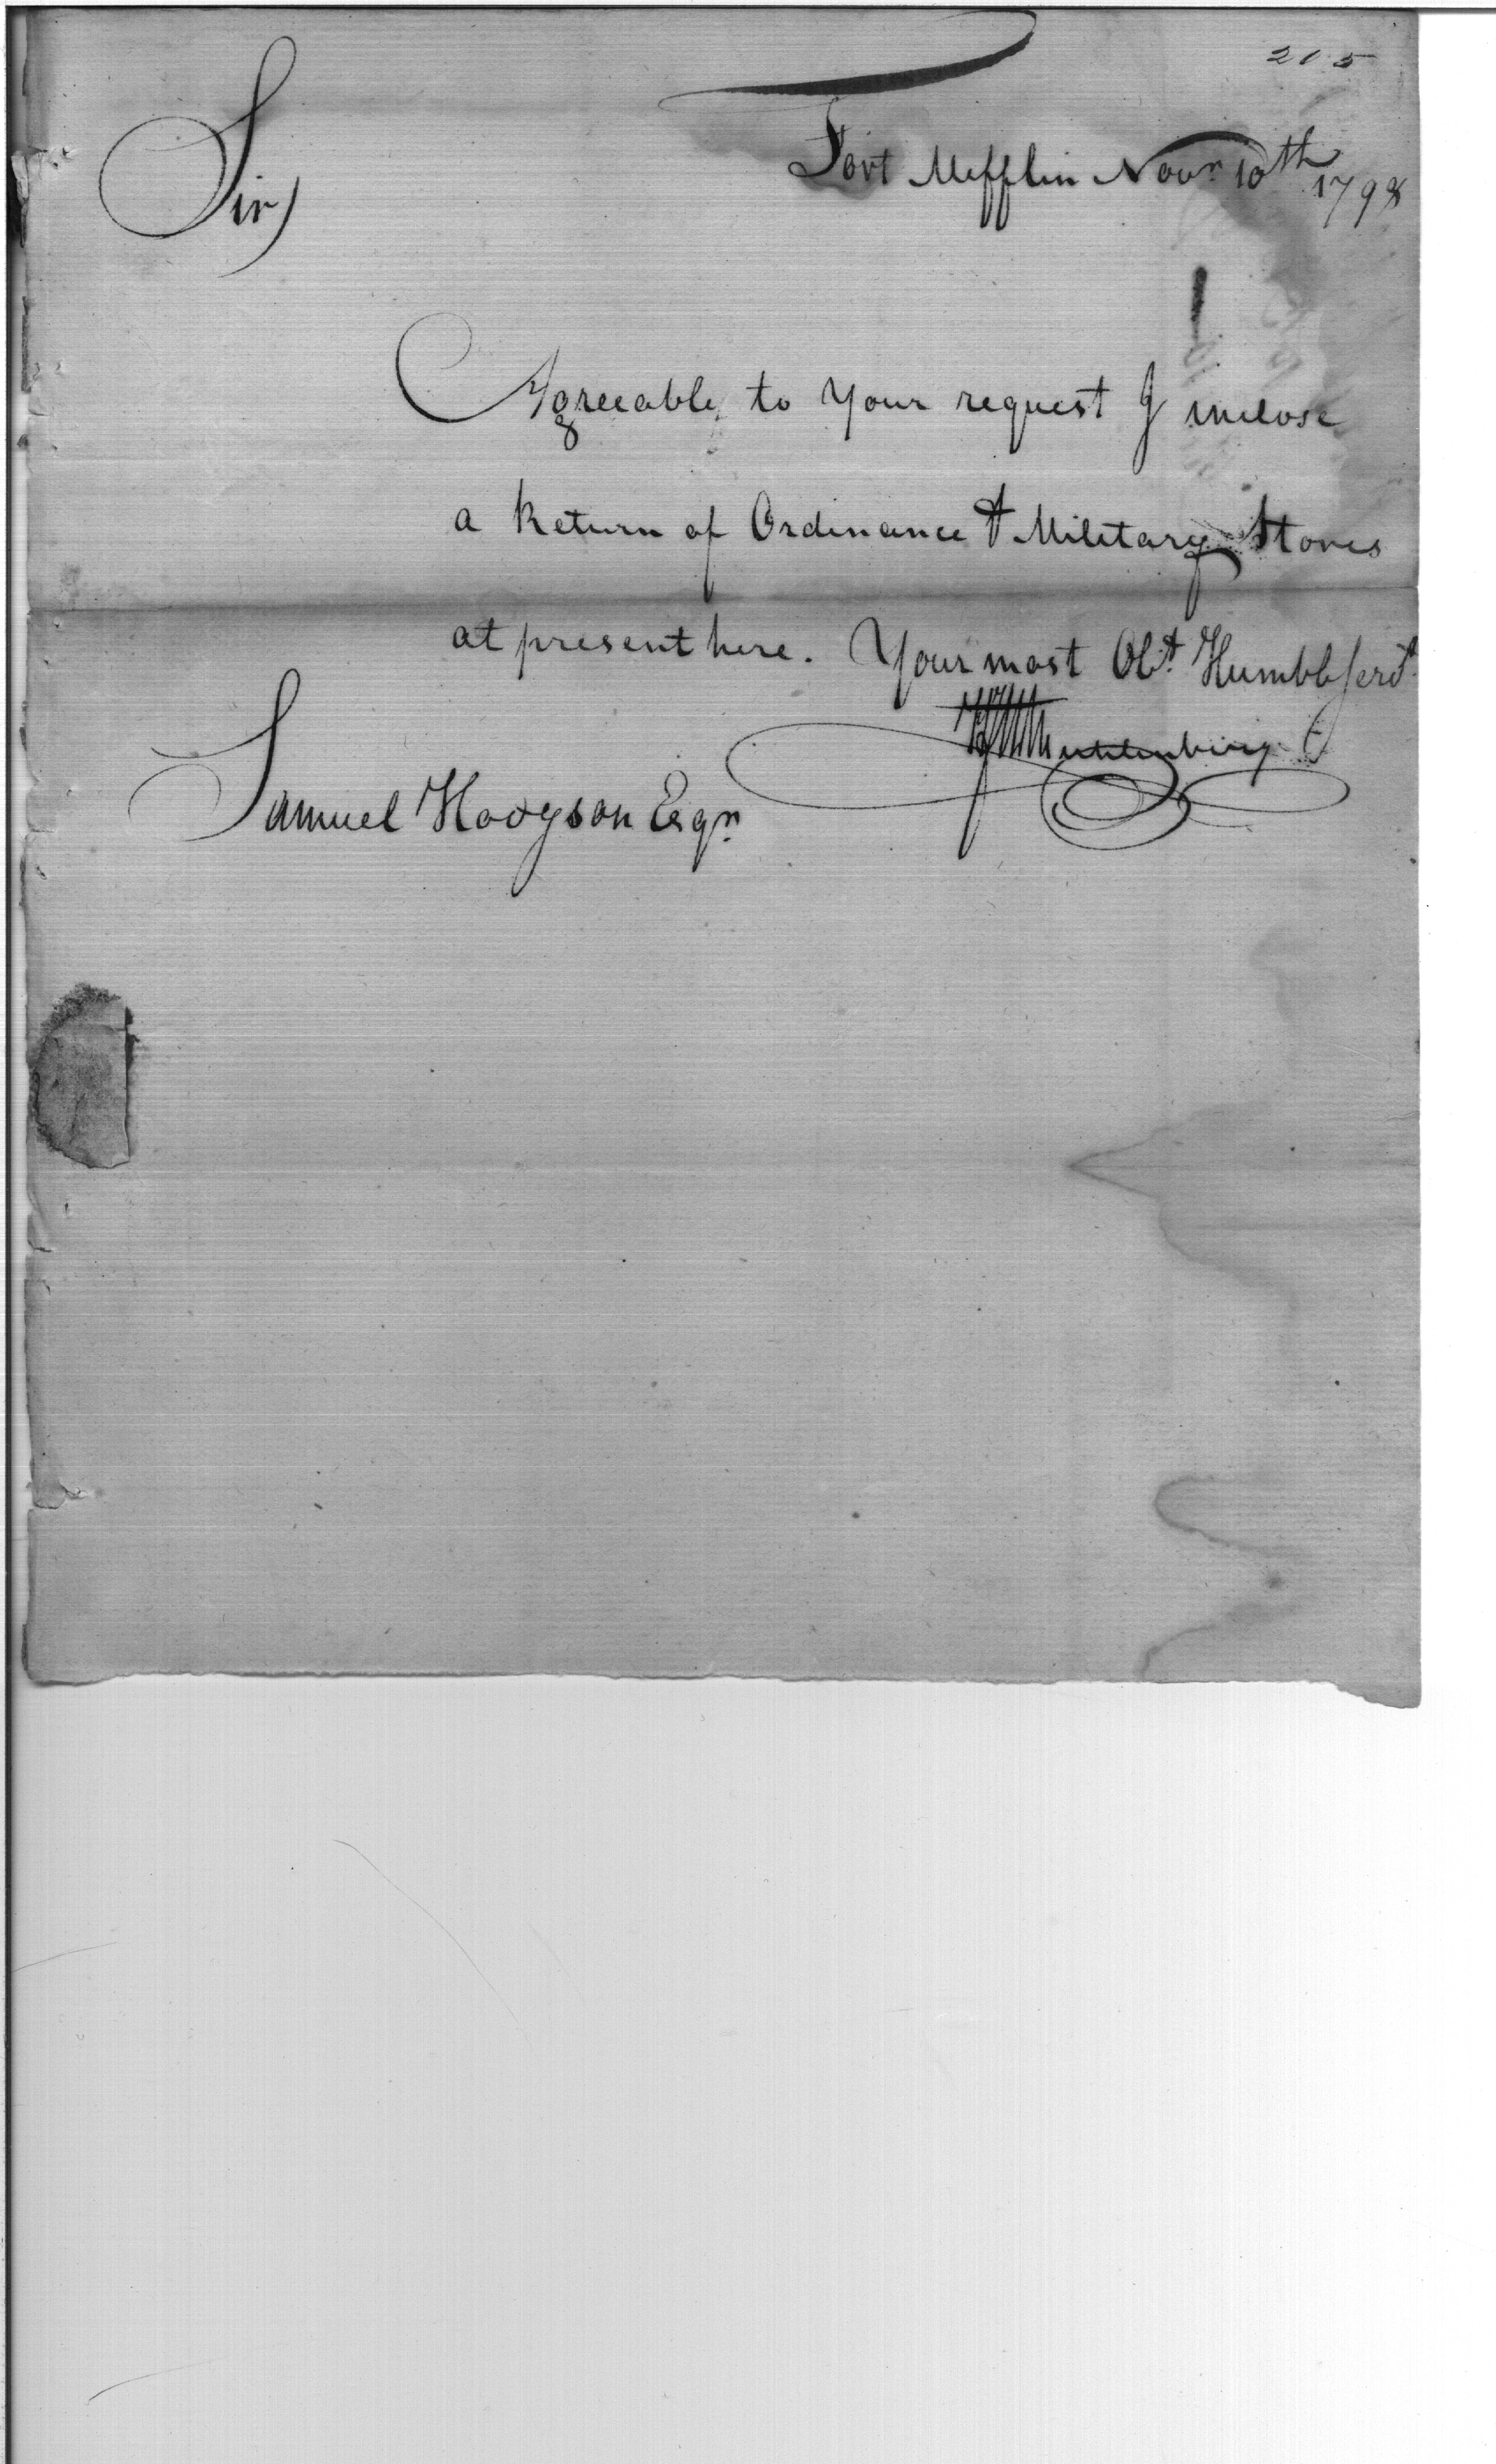 215
Fort Mefflin Novr. 10th 1798
Sir,
Agreeable to Your request I inclose
a Return of Ordinance & Military Stores
at present here. Your most Obt. Humbl Servt.
Muhlenberg
Samuel Hodgson Esqr.